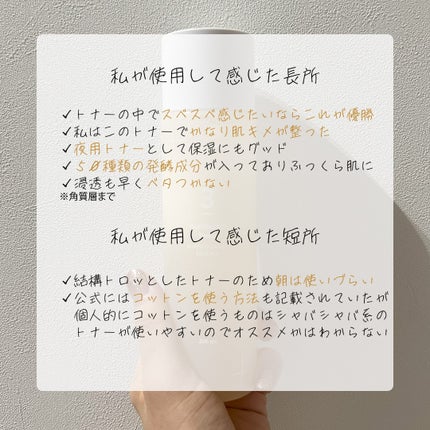 私が使用して感じた長所
✓トナーの中でスベスベ感じたいならこれが優勝
✓私はこのトナーでかなり肌キメが整った
✓夜用トナーとして保湿にもグッド
✓50種類の発酵成分が入っておりふっくら肌に
✓浸透も早くベタつかない
※角質層まで
私が使用して感じた短所
✓結構トロッとしたトナーのため朝は使いづらい
✓公式にはコットンを使う方法も記載されていたが
個人的にコットンを使うものはシャバシャバ系の
トナーが使いやすいのでオススメかはわからない